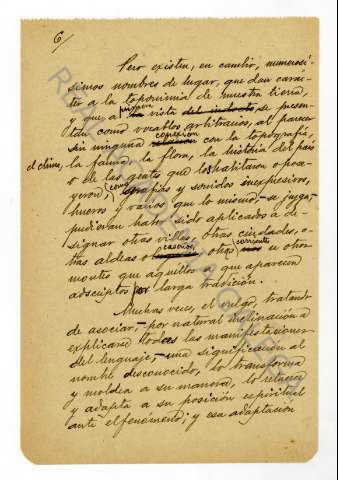 6/
Pero existen, en cambio, numerosí-
simos nombres de lugar, que dan carác-
ter a la toponimia de nuestra tierra,
y que, a primera vista del indocto, se presen-
tan como vocablos arbitrarios, al parecer
sin ninguna conexión con la topografía,
el clima, la fauna, la flora, la historia del país
o de las gentes que lo habitaron o poe-
yeron; como grafías y sonidos inexpresivos,
hueros y vanos, que lo mismo, - se juzga, -
pudieran haber sido aplicados a de-
signar otras villas, otras ciudades, o-
tras aldeas o caseríos, otras corrientes u otros
montes que aquellos a que aparecen
adscriptos por larga tradición.
Muchas veces, el vulgo, tratando
de asociar, - por natural inclinación a
explicarse todas las manifestaciones
del lenguaje, - una significación al
nombre desconocido, lo transforma
y moldea a su manera, lo retuerce
y adapta a su posición espiritual
ante el fenómeno; y esa adaptación